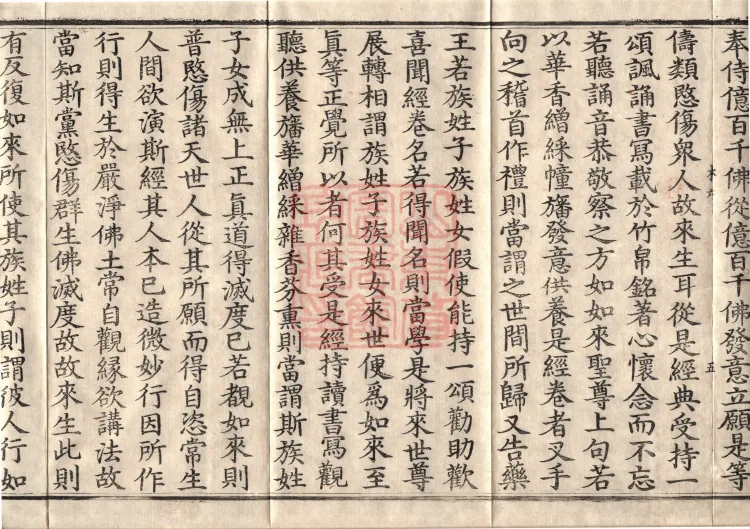 奉侍億百千佛從億百千佛發意立願是等
儔類愍傷衆人故來生耳從是經典受持一
頌諷誦書寫載於竹帛銘著心懷念而不忘
若聽誦音恭敬察之方如如來聖尊上句若
以華香繒綵幢旛發意供養是經卷者叉手
向之稽首作禮則當謂之世間所歸又告藥
王若族姓子族姓女假使能持一頌勸助歡
喜聞經卷名若得聞名則當學是將來世尊
展轉相謂族姓子族姓女來世便爲如來至
眞等正覺所以者何其受是經持讀書寫觀
聽供養旛華繒綵雜香芬熏則當謂斯族姓
子女成無上正眞道得滅度已若覩如來則
普愍傷諸天世人從其所願而得自恣常生
人間欲演斯經其人本已造微妙行因所作
行則得生於嚴淨佛土常自觀緣欲講法故
當知斯黨愍傷群生佛滅度故故來生此則
有反復如來所使其族姓子則謂彼人行如
五